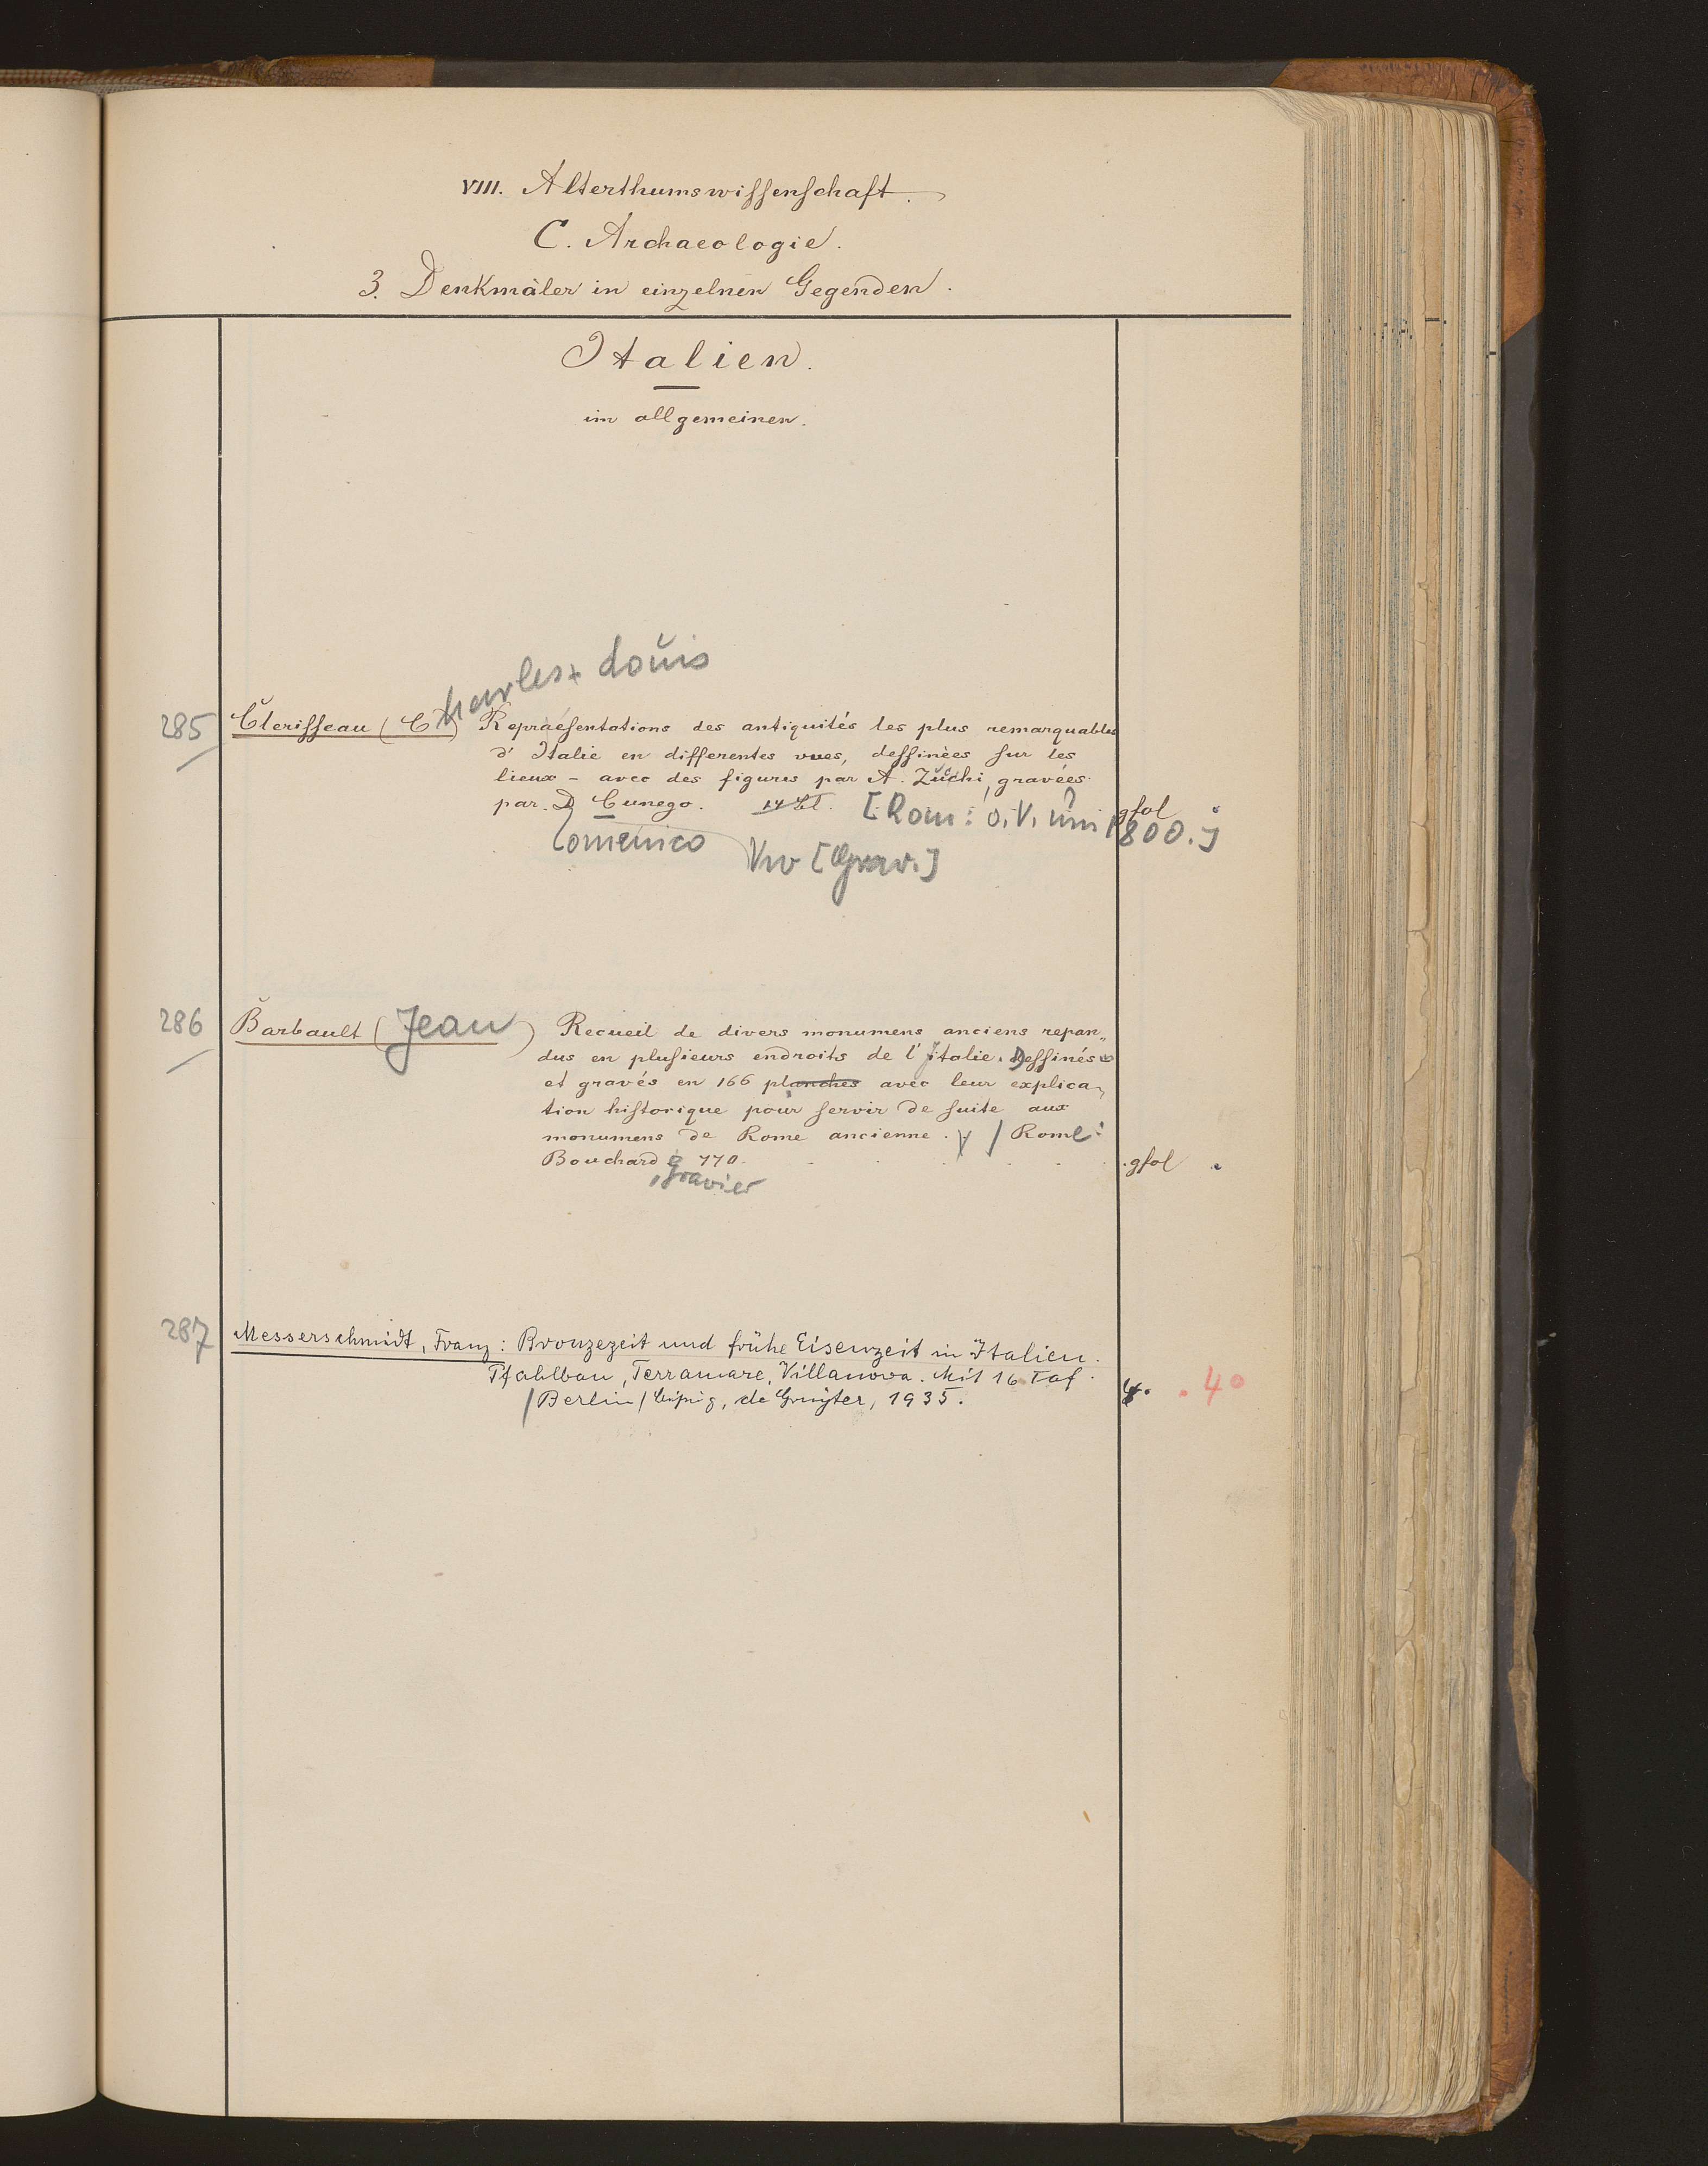 VIII. Alterthumswissenschaft.
C. Archaeologie.
3. Denkmäler in einzelnen Gegenden.
Italien.
im allgemeinen.
Charles-Louis
285 Clerisseau (Ch) Repraésentations des antiquités les plus remarquables
d'Italie en differentes vues, dessinèes sur les
lieux - avec des figures par A. Zucchi, gravées
par D Cunego. 14 Bl. [Rom: o.V. um 1800.] gfol
Domenico [Grav.]
286 Barbault (Jean) Recueil de divers monumens anciens repan„
dus en plusieurs endroits de l'Italie. Dessinés
et gravés en 166 planches avec leur explica„
tion historique pour servir de suite aux
monumens de Rome ancienne. / Rome:
Bouchard 770. gfol
, Gravier
287 Messerschmidt, Franz: Bronzezeit und frühe Eisenzeit in Italien.
Pfahlbau, Terramare, Villanova. Mit 16 Taf.
/Berlin/Leipzig, de Gruyter, 1935. 4. 4°